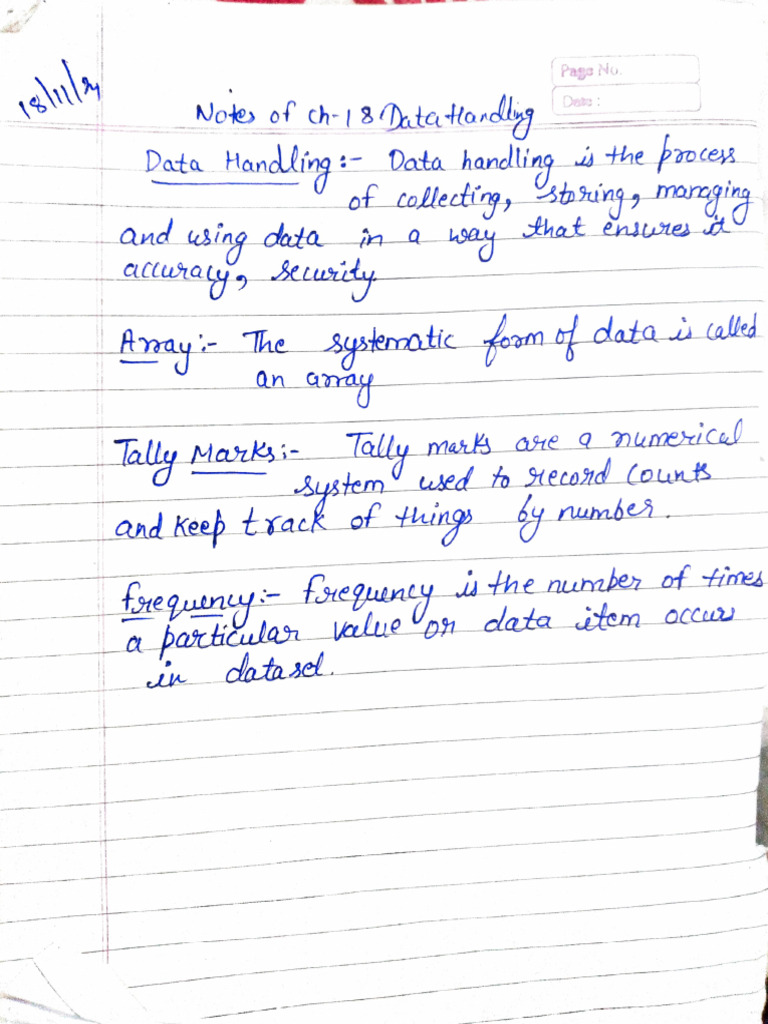 Page No.
Date:
18/11/24
Notes of ch-18 Data Handling
Data Handling:- Data handling is the process
of collecting, storing, managing
and using data in a way that ensures it
accuracy, security
Array:- The systematic form of data is called
an array
Tally Marks:- Tally marks are a numerical
system used to record counts
and keep track of things by number.
frequency:- frequency is the number of times
a particular value or data item occurs
in dataset.